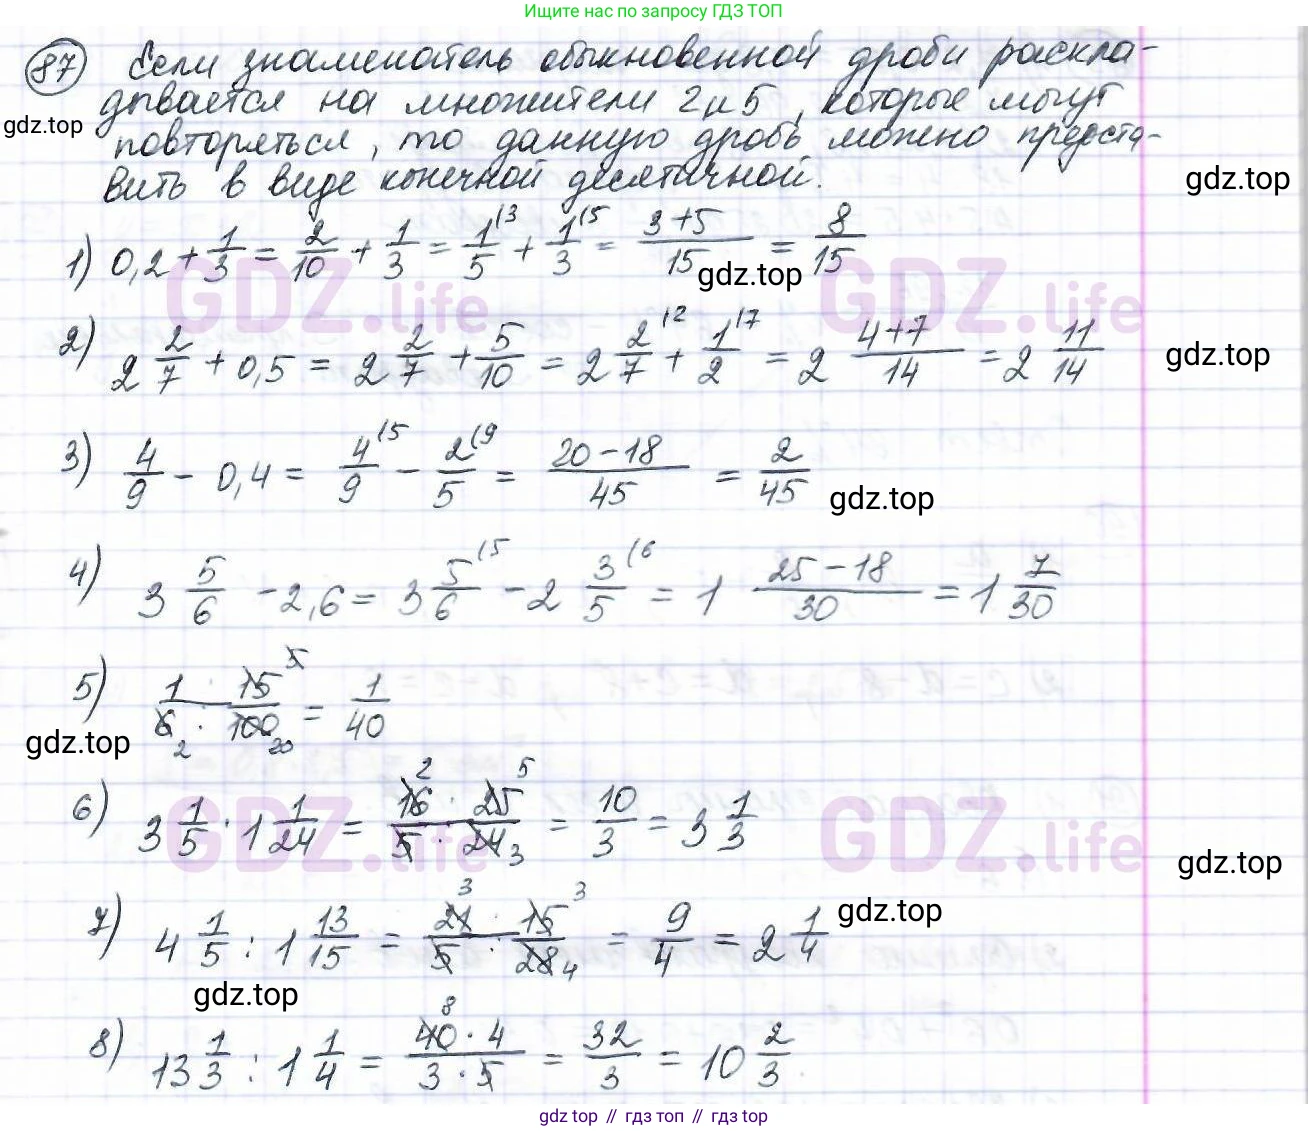 Ищите нас по запросу ГДЗ ТОП
87 Если знаменатель обыкновенной дроби раскла-
дывается на множители 2 и 5, которые могут
gdz.top
повторяться, то данную дробь можно предста-
вить в виде конечной десятичной.
gdz.top
1) 0,2 + 1/3 = 2/10 + 1/3 = 1/5 (3 + 1/3 (5 = (3+5)/15 = 8/15
gdz.top
GDZ.life GDZ.life
2) 2 2/7 + 0,5 = 2 2/7 + 5/10 = 2 2/7 (2 + 1/2 (7 = 2 (4+7)/14 = 2 11/14
gdz.top
3) 4/9 - 0,4 = 4/9 (5 - 2/5 (9 = (20-18)/45 = 2/45
gdz.top
4) 3 5/6 - 2,6 = 3 5/6 (5 - 2 3/5 (6 = 1 (25-18)/30 = 1 7/30
5) (1 · 15 5)/(6 2 · 100 20) = 1/40
gdz.top
6) 3 1/5 · 1 1/24 = (16 2 · 25 5)/(5 · 24 3) = 10/3 = 3 1/3
GDZ.life GDZ.life
gdz.top
7) 4 1/5 : 1 13/15 = (21 3 · 15 3)/(5 · 28 4) = 9/4 = 2 1/4
gdz.top
gdz.top
8) 13 1/3 : 1 1/4 = (40 8 · 4)/(3 · 5) = 32/3 = 10 2/3
gdz.top // гдз топ // гдз top